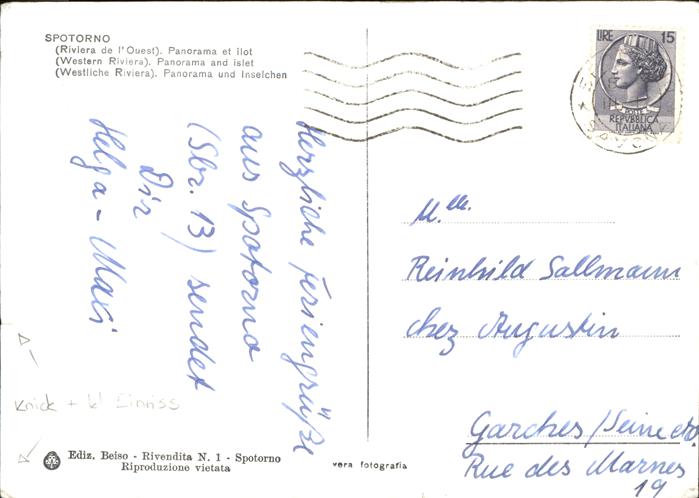 SPOTORNO
(Riviera de l'Ouest). Panorama et îlot
(Western Riviera). Panorama and islet
(Westliche Riviera). Panorama und Inselchen
LIRE 15
POSTE
REPVBBLICA
ITALIANA
Herzliche Feriengrüße
aus Spotorno
(Sbr. 13) sendet
Dir
Helga-Mari
Mlle.
Reinhild Sallmann
chez Augustin
Garches/Seine et O.
Rue des Marnes
19
Knick + kl Einriss
Ediz. Beiso - Rivendita N. 1 - Spotorno
Riproduzione vietata
vera fotografia